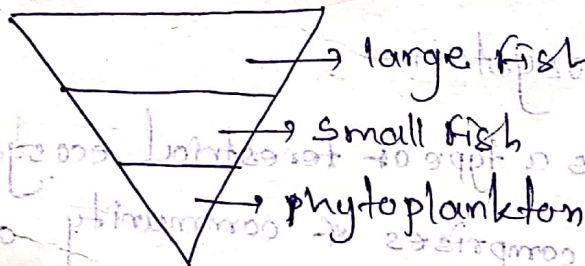 large fish
small fish
phytoplankton